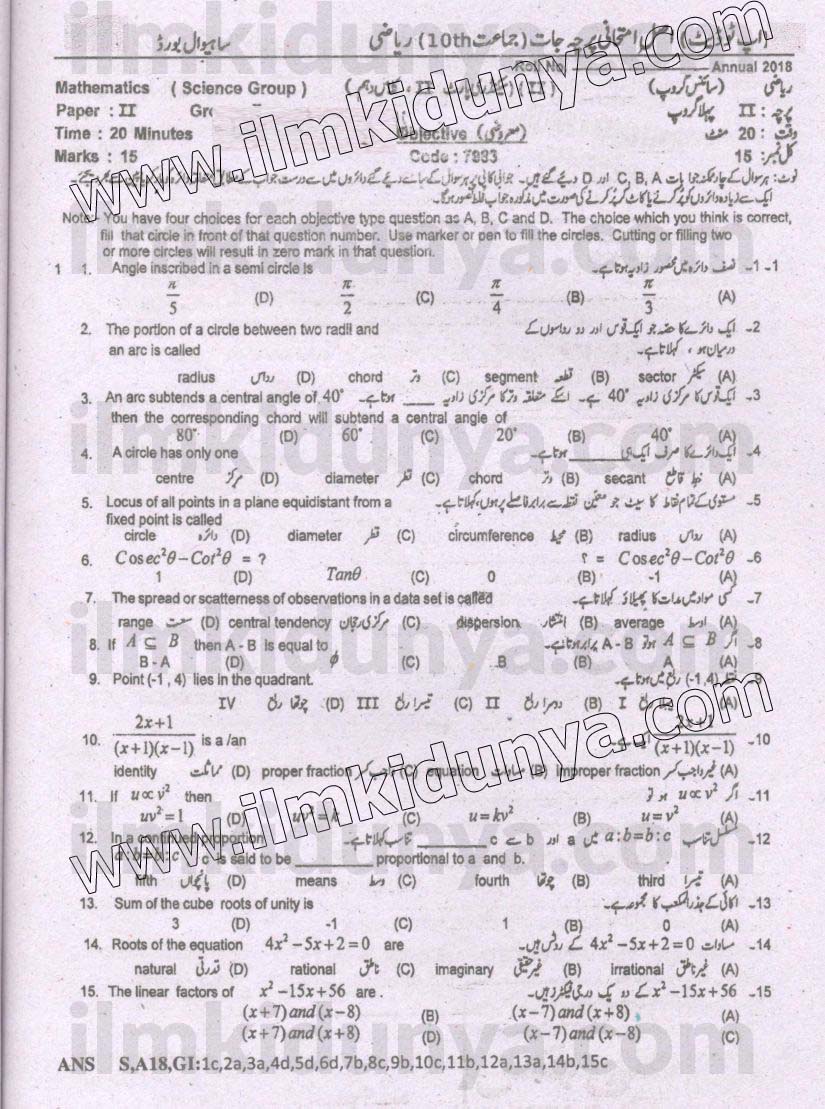 ساہیوال بورڈ (اپ ٹو ڈیٹ) امتحانی پرچہ جات (جماعت 10th) ریاضی
Roll No Annual 2018
Mathematics ( Science Group ) (سائنس گروپ) ریاضی
Paper : II پہلا گروپ پرچہ : II
Time : 20 Minutes Objective (معروضی) وقت : 20 منٹ
Marks : 15 Code : 7983 کل نمبر: 15
Note:- You have four choices for each objective type question as A, B, C and D. The choice which you think is correct,
fill that circle in front of that question number. Use marker or pen to fill the circles. Cutting or filling two
or more circles will result in zero mark in that question.
1 1. Angle inscribed in a semi circle is نصف دائرہ میں محصور زاویہ ہوتا ہے۔ -1 -1
π/5 (D) π/2 (C) π/4 (B) π/3 (A)
2. The portion of a circle between two radii and ایک دائرے کا حصہ جو ایک قوس اور دو رداسوں کے -2
an arc is called درمیان ہو ، کہلاتا ہے۔
radius رداس (D) chord وتر (C) segment قطعہ (B) sector سیکٹر (A)
3. An arc subtends a central angle of 40° ایک قوس کا مرکزی زاویہ 40° ہے۔ اسکے متعلقہ وتر کا مرکزی زاویہ ____ ہوتا ہے۔ -3
then the corresponding chord will subtend a central angle of
80° (D) 60° (C) 20° (B) 40° (A)
4. A circle has only one ایک دائرے کا صرف ایک ہی ________ ہوتا ہے۔ -4
centre مرکز (D) diameter قطر (C) chord وتر (B) secant خط قاطع (A)
5. Locus of all points in a plane equidistant from a مستوی کے تمام نقاط کا سیٹ جو معین نقطہ سے برابر فاصلے پر ہوں، کہلاتا ہے۔ -5
fixed point is called
circle دائرہ (D) diameter قطر (C) circumference محیط (B) radius رداس (A)
6. Cosec²θ – Cot²θ = ? ؟ = Cosec²θ – Cot²θ -6
1 (D) Tanθ (C) 0 (B) -1 (A)
7. The spread or scatterness of observations in a data set is called کسی مواد میں مدات کا پھیلاؤ کہلاتا ہے۔ -7
range سعت (D) central tendency مرکزی رجحان (C) dispersion انتشار (B) average اوسط (A)
8. If A ⊆ B then A - B is equal to اگر A ⊆ B ہو تو A - B برابر ہوتا ہے۔ -8
B - A (D) ϕ (C) B (B) A (A)
9. Point (-1 , 4) lies in the quadrant. (-1,4) ربع میں ہوتا ہے۔ -9
IV چوتھا ربع (D) III تیسرا ربع (C) II دوسرا ربع (B) I ربع (A)
10. 2x+1/(x+1)(x−1) is a /an 2x+1/(x+1)(x−1) -10
identity مماثلت (D) proper fraction واجب کسر (C) equation مساوات (B) improper fraction غیر واجب کسر (A)
11. If u∝v² then اگر u∝v² ہو تو -11
uv²=1 (D) uv²=k (C) u=kv² (B) u=v² (A)
12. In a continued proportion مسلسل تناسب a:b=b:c میں a اور b سے c ________ تناسب کہلاتا ہے۔ -12
a:b=b:c , c is said to be ________ proportional to a and b.
fifth پانچواں (D) means وسط (C) fourth چوتھا (B) third تیسرا (A)
13. Sum of the cube roots of unity is اکائی کے جذر المکعب کا مجموعہ ہے۔ -13
3 (D) -1 (C) 1 (B) 0 (A)
14. Roots of the equation 4x²−5x+2=0 are مساوات 4x²−5x+2=0 کے روٹس ہیں۔ -14
natural قدرتی (D) rational ناطق (C) imaginary غیر حقیقی (B) irrational غیر ناطق (A)
15. The linear factors of x²−15x+56 are . x²−15x+56 کے دو یک درجی فیکٹرز ہیں۔ -15
(x+7)and(x−8) (B) (x−7)and(x+8) (A)
(x+7)and(x+8) (D) (x−7)and(x−8) (C)
ANS S,A18,GI:1c,2a,3a,4d,5d,6d,7b,8c,9b,10c,11b,12a,13a,14b,15c
www.ilmkidunya.com
www.ilmkidunya.com
ilmkidunya.com
ilmkidunya.com
ilmkidunya.com
ilmkidunya.com
ilmkidunya.com